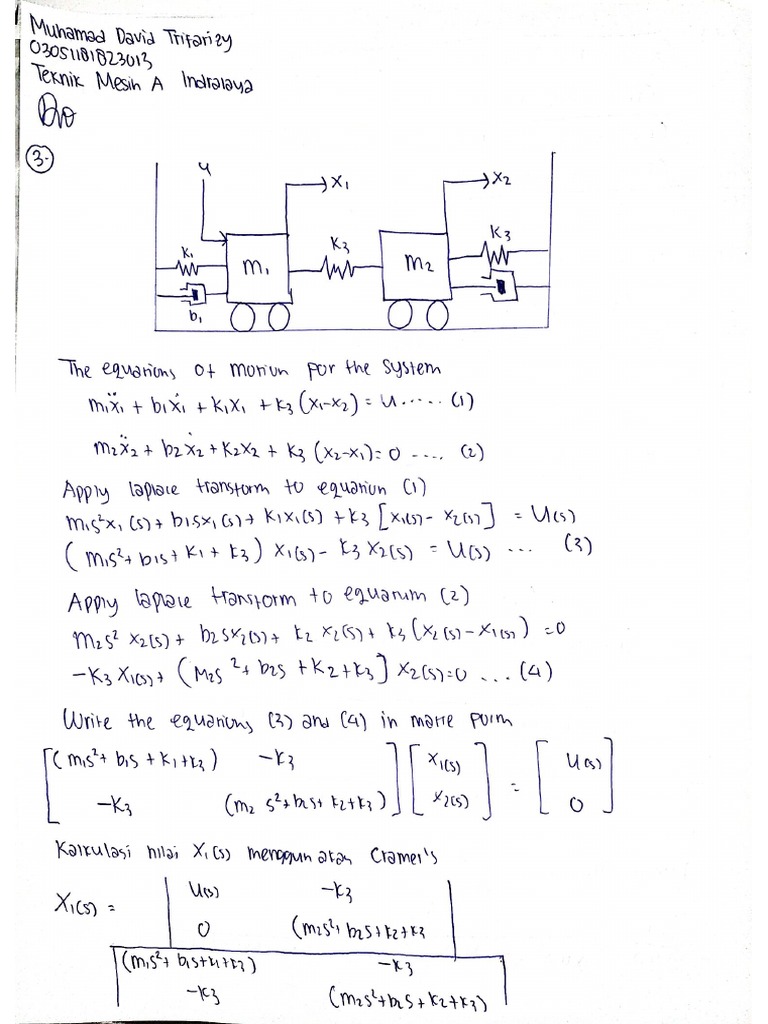 Muhamad David Trifarizy
03051181823013
Teknik Mesin A Indralaya
3.
u
x1
x2
K1
m1
K3
m2
K3
b1
The equations of motion for the system
m1ẍ1 + b1ẋ1 + K1x1 + K3 (x1-x2) = u ..... (1)
m2ẍ2 + b2ẋ2 + K2x2 + K3 (x2-x1) = 0 .... (2)
Apply laplace transform to equation (1)
m1s²x1(s) + b1sx1(s) + K1x1(s) + K3 [x1(s) - x2(s)] = U(s)
(m1s² + b1s + K1 + K3) x1(s) - K3 x2(s) = U(s) ... (3)
Apply laplace transform to equation (2)
m2s² x2(s) + b2sx2(s) + K2 x2(s) + K3 (x2(s) - x1(s)) = 0
-K3 x1(s) + (m2s² + b2s + K2 + K3] x2(s) = 0 ... (4)
Write the equations (3) and (4) in form
[(m1s² + b1s + K1 + K3) -K3] [x1(s)] = [U(s)]
[-K3 (m2 s² + b2s + K2 + K3)] [x2(s)] [0]
Kalkulasi nilai X1(s) menggunakan Cramer's
X1(s) =
| U(s) -K3 |
| 0 (m2s² + b2s + K2 + K3 |
| (m1s² + b1s + K1 + K3) -K3 |
| -K3 (m2s² + b2s + K2 + K3) |